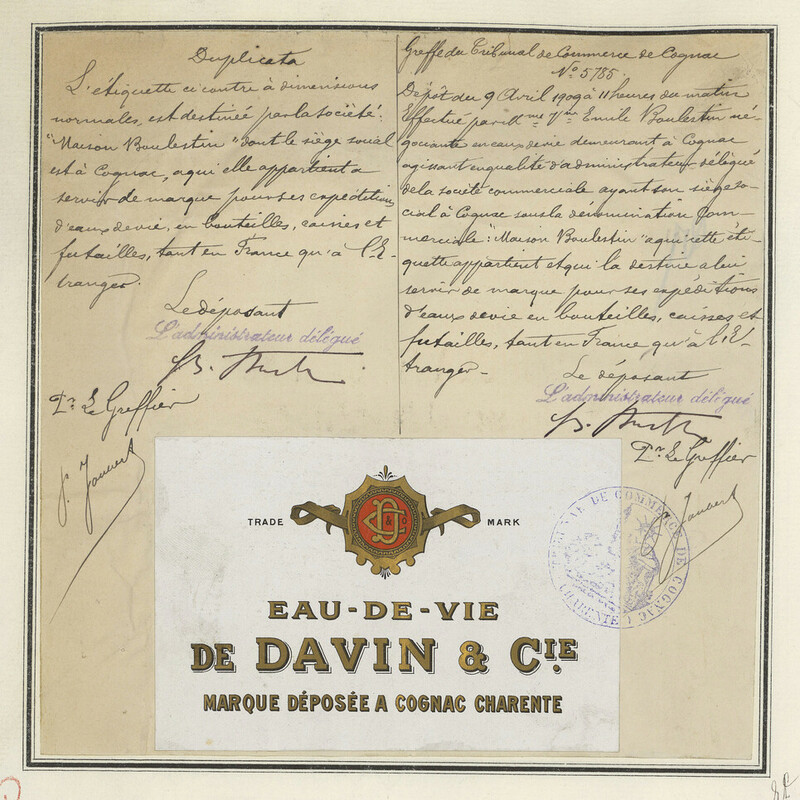 Duplicata
L'étiquette ci contre à dimensions
normales, est destinée par la société:
"Maison Boulestin" dont le siège social
est à Cognac, a qui elle appartient a
servir de marque pour ses expéditions
d'eaux de vie, en bouteilles, caisses et
futailles, tant en France qu'à l'E-
tranger.
Le déposant
L'administrateur délégué
Pr Le Greffier
Greffe du Tribunal de Commerce de Cognac
No 5785.
Dépôt du 9 Avril 1909 à 11 heures du matin
Effectué par Emile Boulestin né-
gociant en eaux de vie demeurant à Cognac
agissant en qualité d'administrateur délégué
de la société commerciale ayant son siège so-
cial à Cognac sous la dénomination Com-
merciale: "Maison Boulestin" a qui cette éti-
quette appartient et qui la destine a lui
servir de marque pour ses expéditions
d'eaux de vie en bouteilles, caisses et
futailles, tant en France qu'à l'E-
tranger.
Le déposant
L'administrateur délégué
Pr Le Greffier
TRADE MARK
D & Co
EAU-DE-VIE
DE DAVIN & CIE
MARQUE DÉPOSÉE A COGNAC CHARENTE
TRIBUNAL DE COMMERCE DE COGNAC
CHARENTE